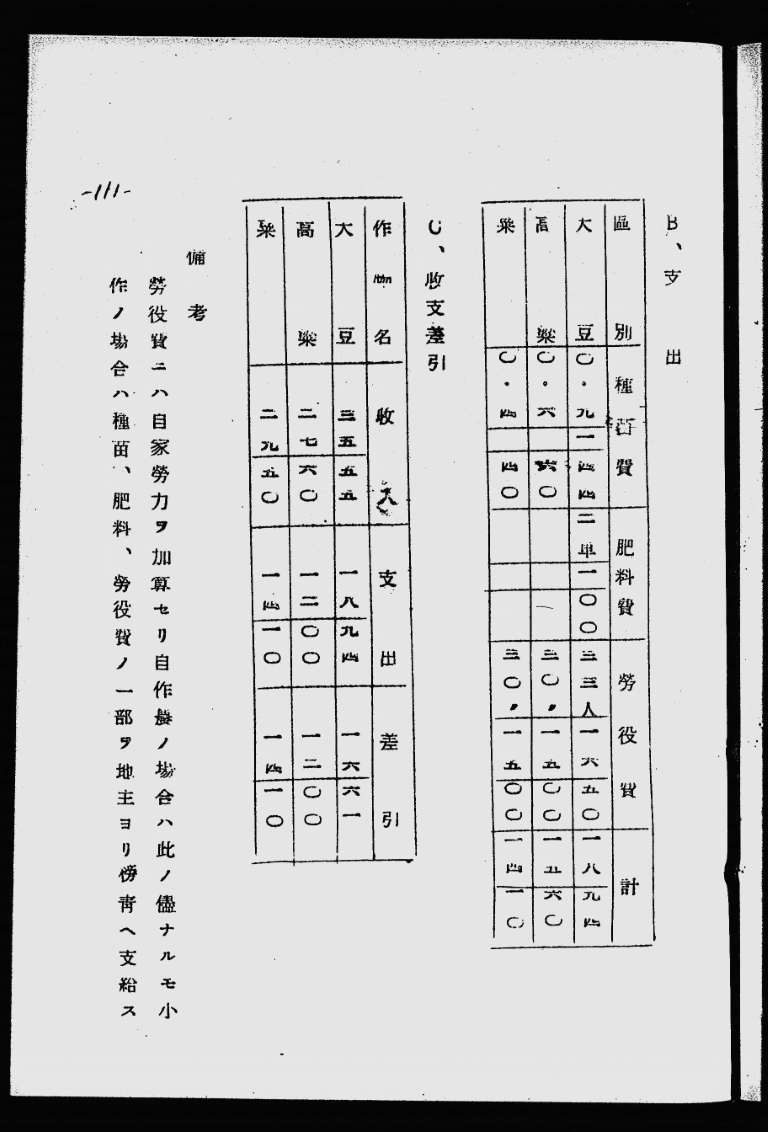 B、支出
區別 種苗費 肥料費 勞役費 計
大豆 〇・九 一四四 二車 一〇〇 三三人 一六五〇 一八九四
高粱 〇・六 六〇 三〇〃 一五〇〇 一五六〇
粟 〇・四 四〇 三〇〃 一五〇〇 一四一〇
C、收支差引
作物名 收入 支出 差引
大豆 三五五五 一八九四 一六六一
高粱 二七六〇 一二〇〇 一二〇〇
粟 二九五〇 一四一〇 一四一〇
備考
勞役費ニハ自家勞力ヲ加算セリ自作農ノ場合ハ此ノ儘ナルモ小
作ノ場合ハ種苗、肥料、勞役費ノ一部ヲ地主ヨリ傍青ヘ支給ス
-111-